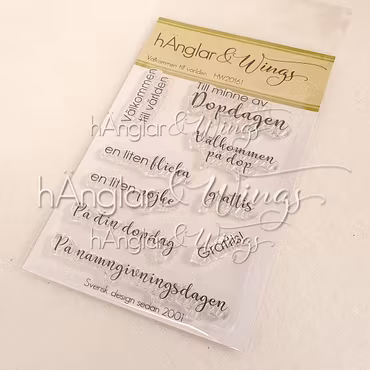 hÄnglar & Wings
Välkommen till världen HW20161
Välkommen
till världen
Till minne av
Dopdagen
Välkommen
på dop
en liten flicka
en liten pojke
grattis
På din dopdag
Grattis!
På namngivningsdagen
Svensk design sedan 2001
hÄnglar & Wings
hÄnglar & Wings
hÄnglar & Wings